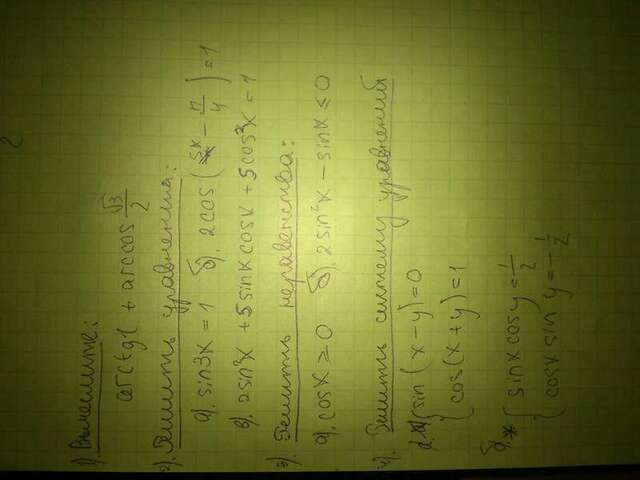 2
1). Вычеслите:
arctg1 + arccos √3/2
2). Решить уравнения:
а). sin3x = 1 б). 2cos (5x - π/4) = 1
в). 2sin²x + 5sinx cosx + 5cos²x = 1
3). Решить неравенства:
а). cosx ≥ 0 б). 2sin²x - sinx ≤ 0
4). Решить систему уравнений
а). { sin (x-y) = 0
cos(x+y) = 1
б). * { sinx cosy = 1/2
cosx sin y = -1/2